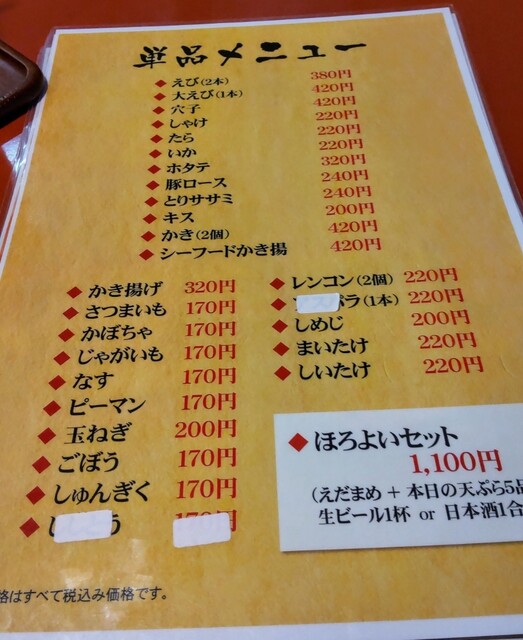 単品メニュー
◆ えび(2本) 380円
◆ 大えび(1本) 420円
◆ 穴子 420円
◆ しゃけ 220円
◆ たら 220円
◆ いか 220円
◆ ホタテ 320円
◆ 豚ロース 240円
◆ とりササミ 240円
◆ キス 200円
◆ かき(2個) 420円
◆ シーフードかき揚 420円
◆ かき揚げ 320円
◆ さつまいも 170円
◆ かぼちゃ 170円
◆ じゃがいも 170円
◆ なす 170円
◆ ピーマン 170円
◆ 玉ねぎ 200円
◆ ごぼう 170円
◆ しゅんぎく 170円
◆
◆ レンコン(2個) 220円
◆ (1本) 220円
◆ しめじ 200円
◆ まいたけ 220円
◆ しいたけ 220円
◆ ほろよいセット
1,100円
(えだまめ + 本日の天ぷら5品
生ビール1杯 or 日本酒1合
格はすべて税込み価格です。